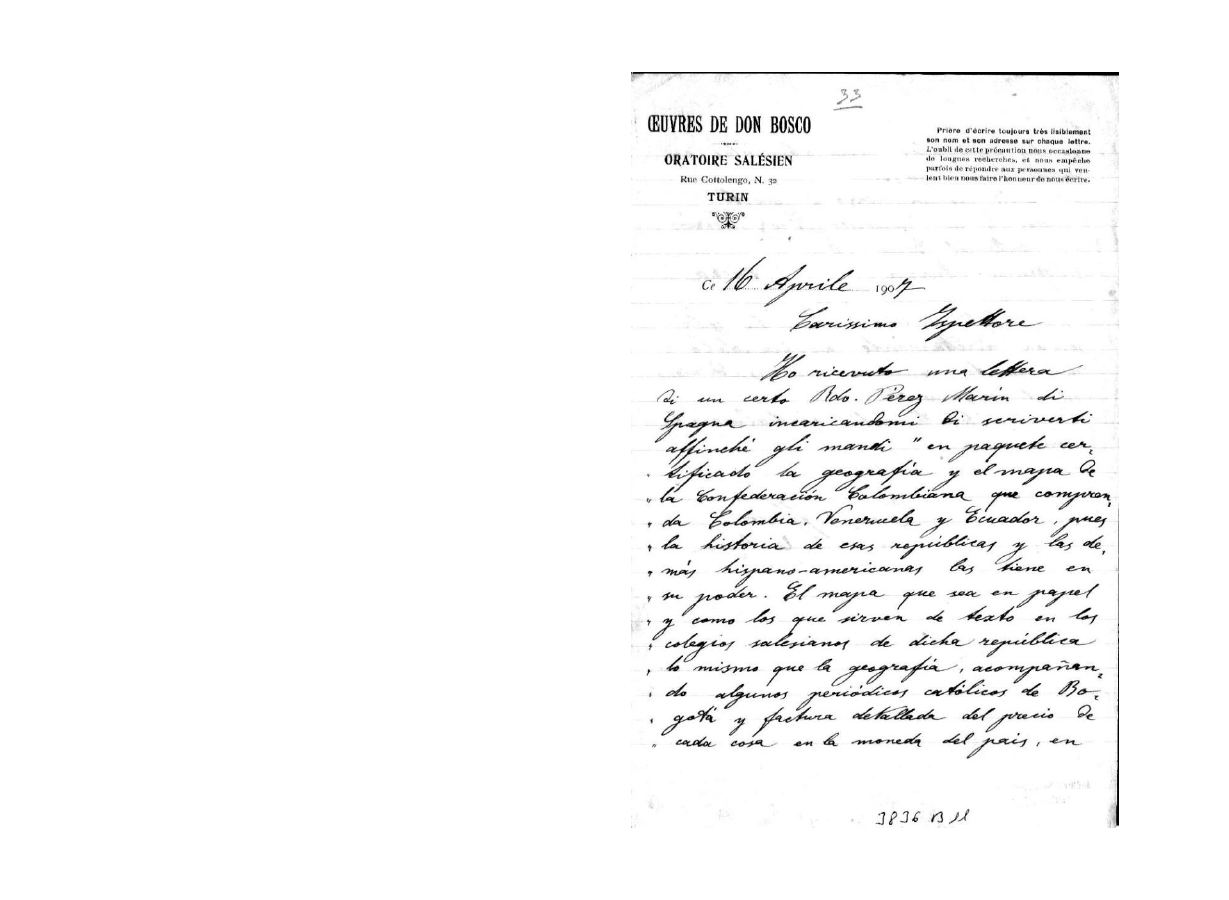 33
ŒUVRES DE DON BOSCO
ORATOIRE SALÉSIEN
Rue Cottolengo, N. 32
TURIN
Prière d'écrire toujours très lisiblement
son nom et son adresse sur chaque lettre.
L'oubli de cette précaution nous occasionne
de longues recherches, et nous empêche
parfois de répondre aux personnes qui veu-
lent bien nous faire l'honneur de nous écrire.
Ce 16 Aprile 1907
Carissimo Ispettore
Ho ricevuto una lettera
di un certo Rdo. Pérez Marín di
Spagna incaricandomi di scriverti
affinché gli mandi " en paquete cer-
" tificado la geografía y el mapa de
" la Confederación Colombiana que compren-
" da Colombia, Venezuela y Ecuador, pues
" la historia de esas repúblicas y las de-
" más hispano-americanas las tiene en
" su poder. El mapa que sea en papel
" y como los que sirven de texto en los
" colegios salesianos de dicha república
" lo mismo que la geografía, acompañan-
" do algunos periódicos católicos de Bo-
" gotá y factura detallada del precio de
" cada cosa en la moneda del pais, en
3836 B 11